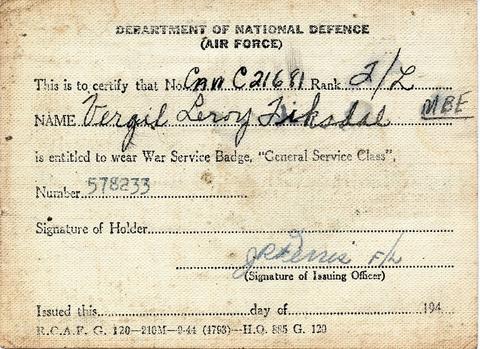 DEPARTMENT OF NATIONAL DEFENCE
(AIR FORCE)
This is to certify that No. Can C21681 Rank F/L
NAME Vergil Leroy Fiksdal MBE
is entitled to wear War Service Badge, "General Service Class",
Number 578233
Signature of Holder
F/L
(Signature of Issuing Officer)
Issued this day of 194
R.C.A.F. G. 120—210M—9-44 (4793)—H.Q. 885 G. 120